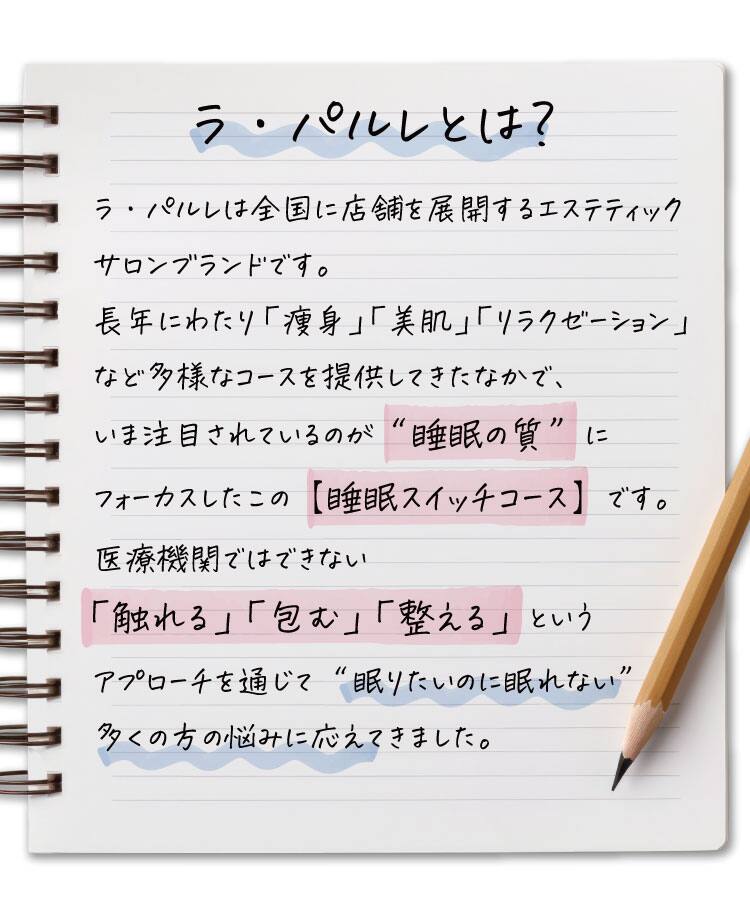 ラ・パルレとは?
ラ・パルレは全国に店舗を展開するエステティック
サロンブランドです。
長年にわたり「痩身」「美肌」「リラクゼーション」
など多様なコースを提供してきたなかで、
いま注目されているのが“睡眠の質”に
フォーカスしたこの【睡眠スイッチコース】です。
医療機関ではできない
「触れる」「包む」「整える」という
アプローチを通じて“眠りたいのに眠れない”
多くの方の悩みに応えてきました。